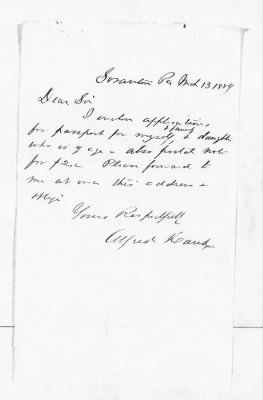 Scranton Pa Mch 13 1889
Dear Sir
I enclose applications
for passport for myself & daughter
& family
who is of age also postal note
for $2.00 Please forward to
me at once this address &
oblige
Yours Respectfully
Alfred